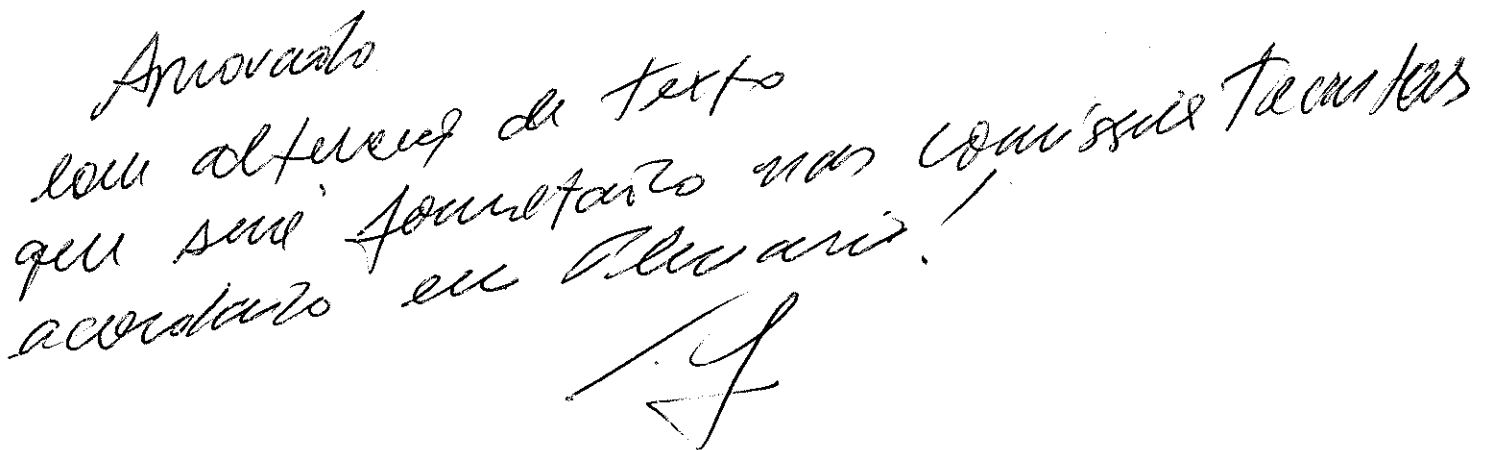 Aprovado
com alteração de texto
que será formatado nas comissões
acordado em Plenário!